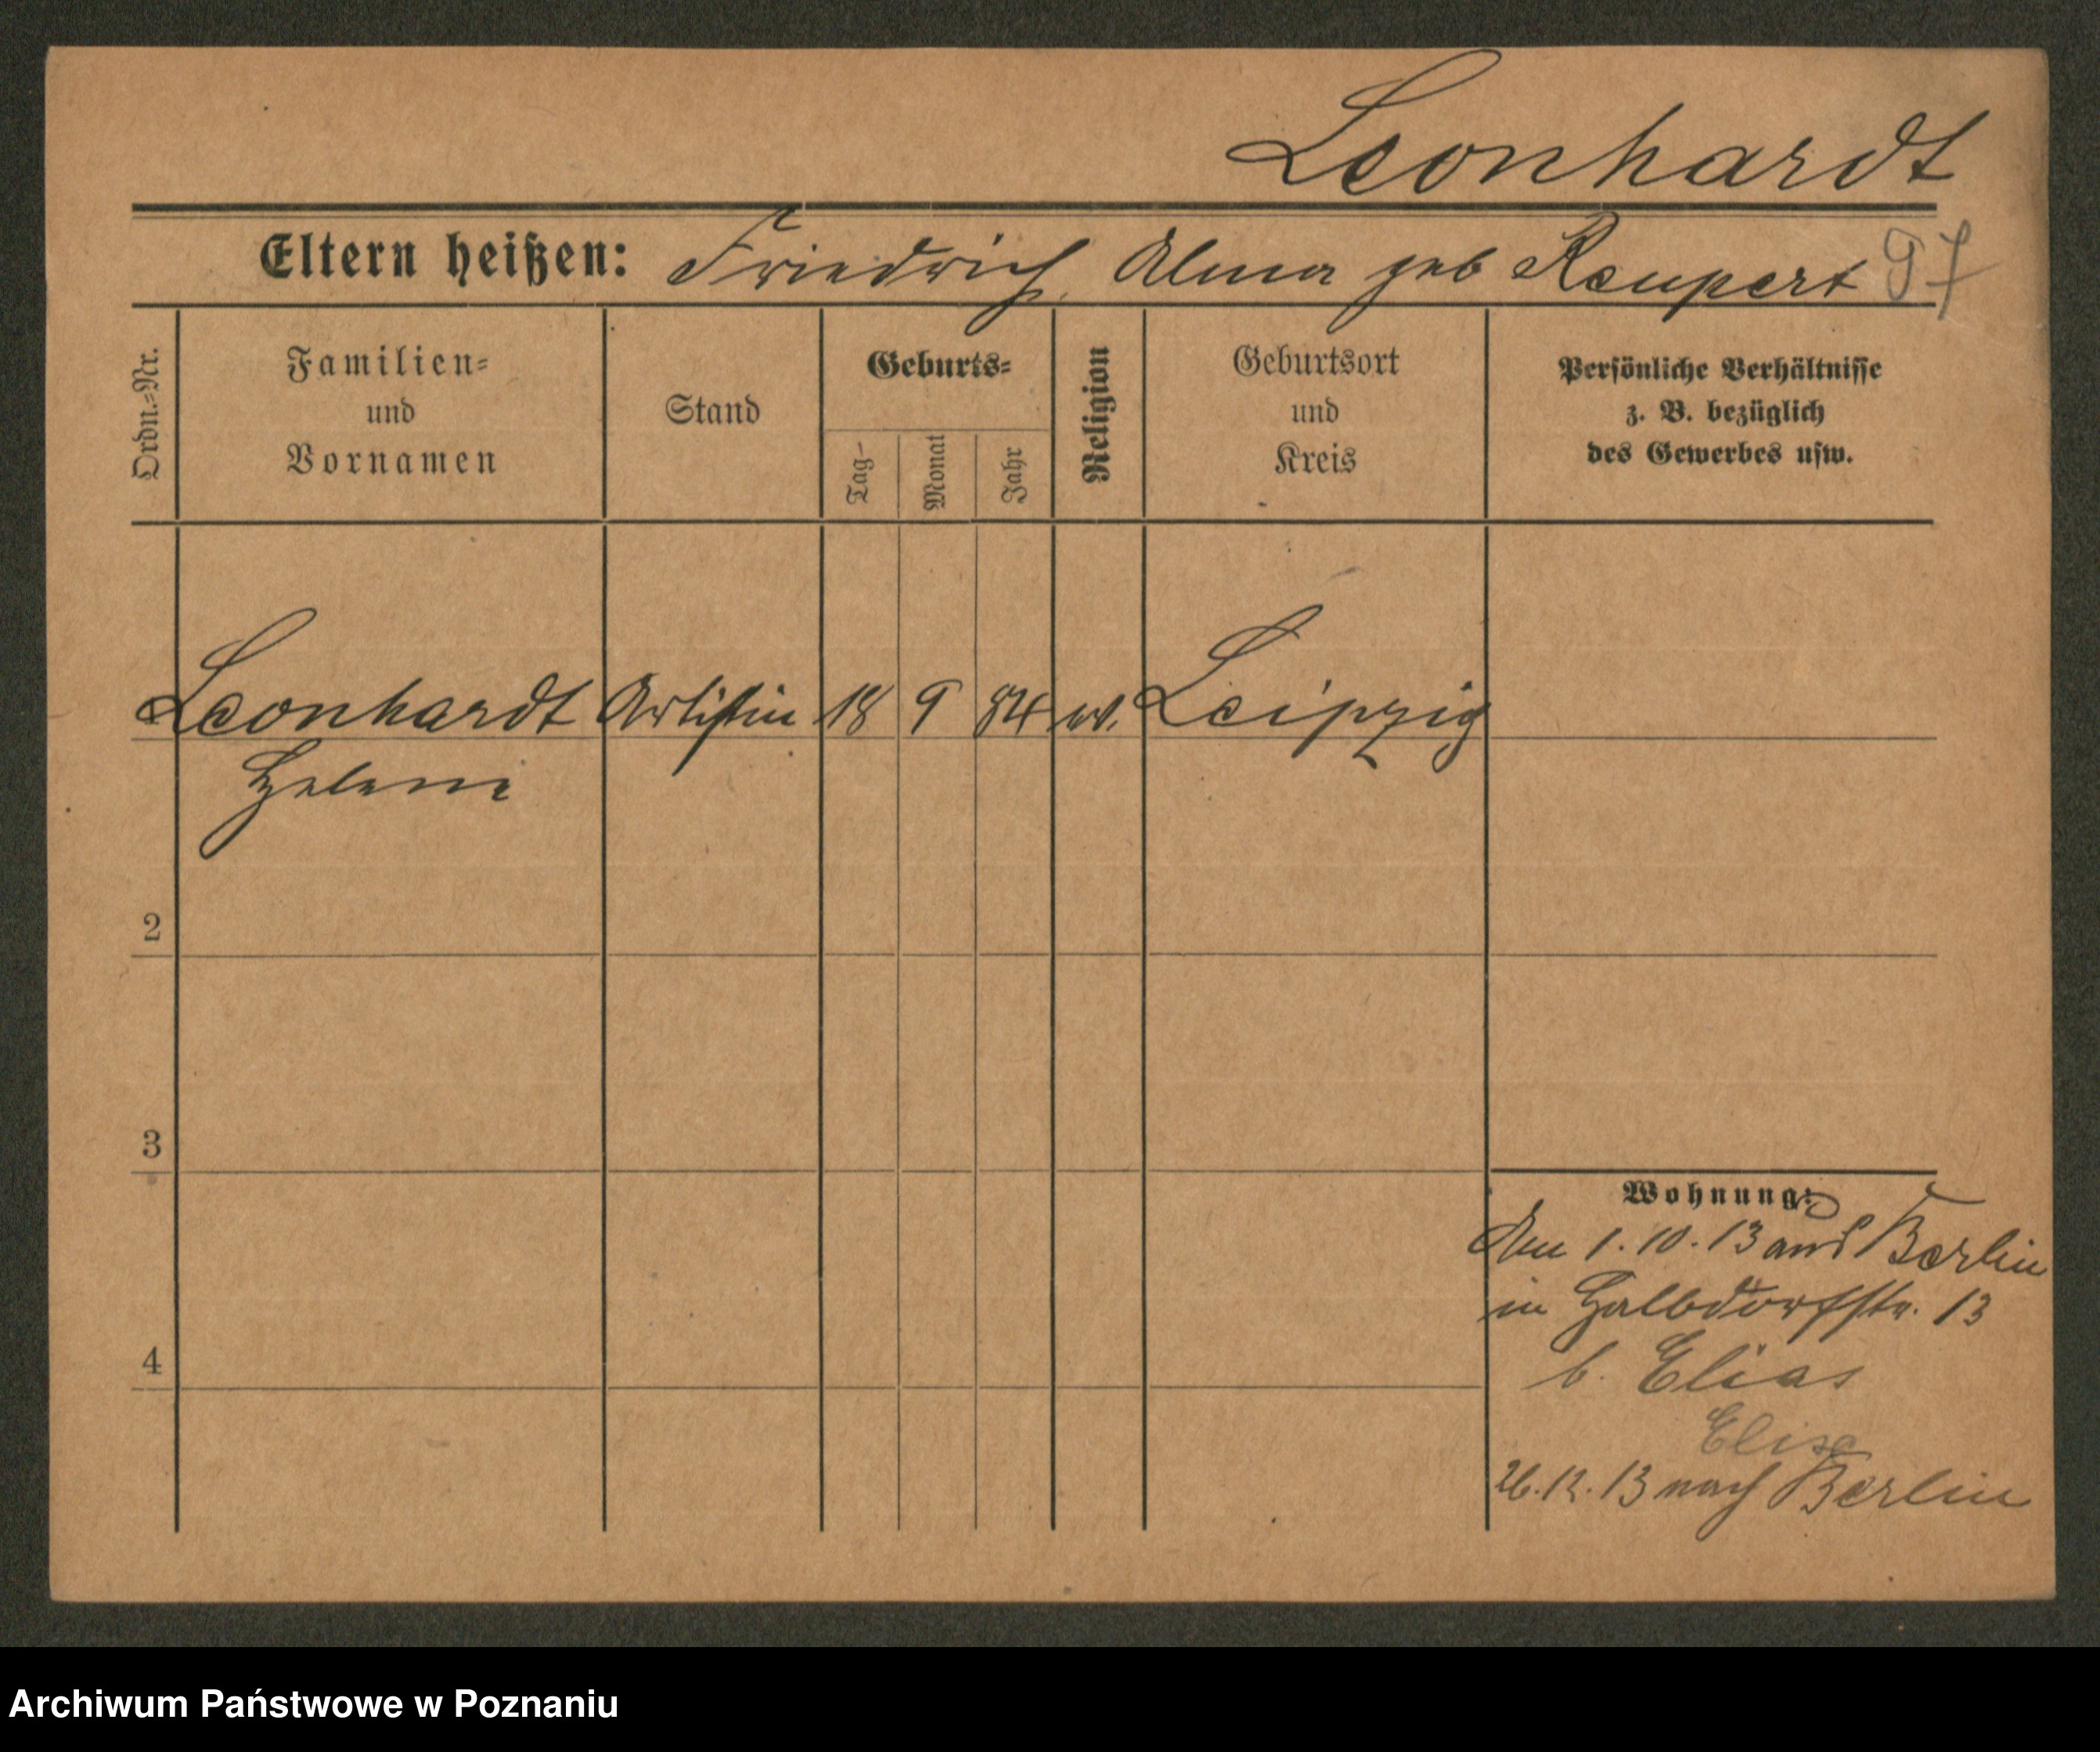 Leonhardt
Eltern heißen: Friedrich, Alma geb Reupert 97
Ordn.-Nr.
Familien-
und
Vornamen
Stand
Geburts-
Tag
Monat
Jahr
Religion
Geburtsort
und
Kreis
Persönliche Verhältnisse
z. B. bezüglich
des Gewerbes usw.
Leonhardt Artistin 18 9 84 ev. Leipzig
Helene
2
3
4
Wohnung:
Am 1.10.13 aus Berlin
in Halbdorfstr. 13
b. Elias
Elise
26.12.13 nach Berlin
Archiwum Państwowe w Poznaniu